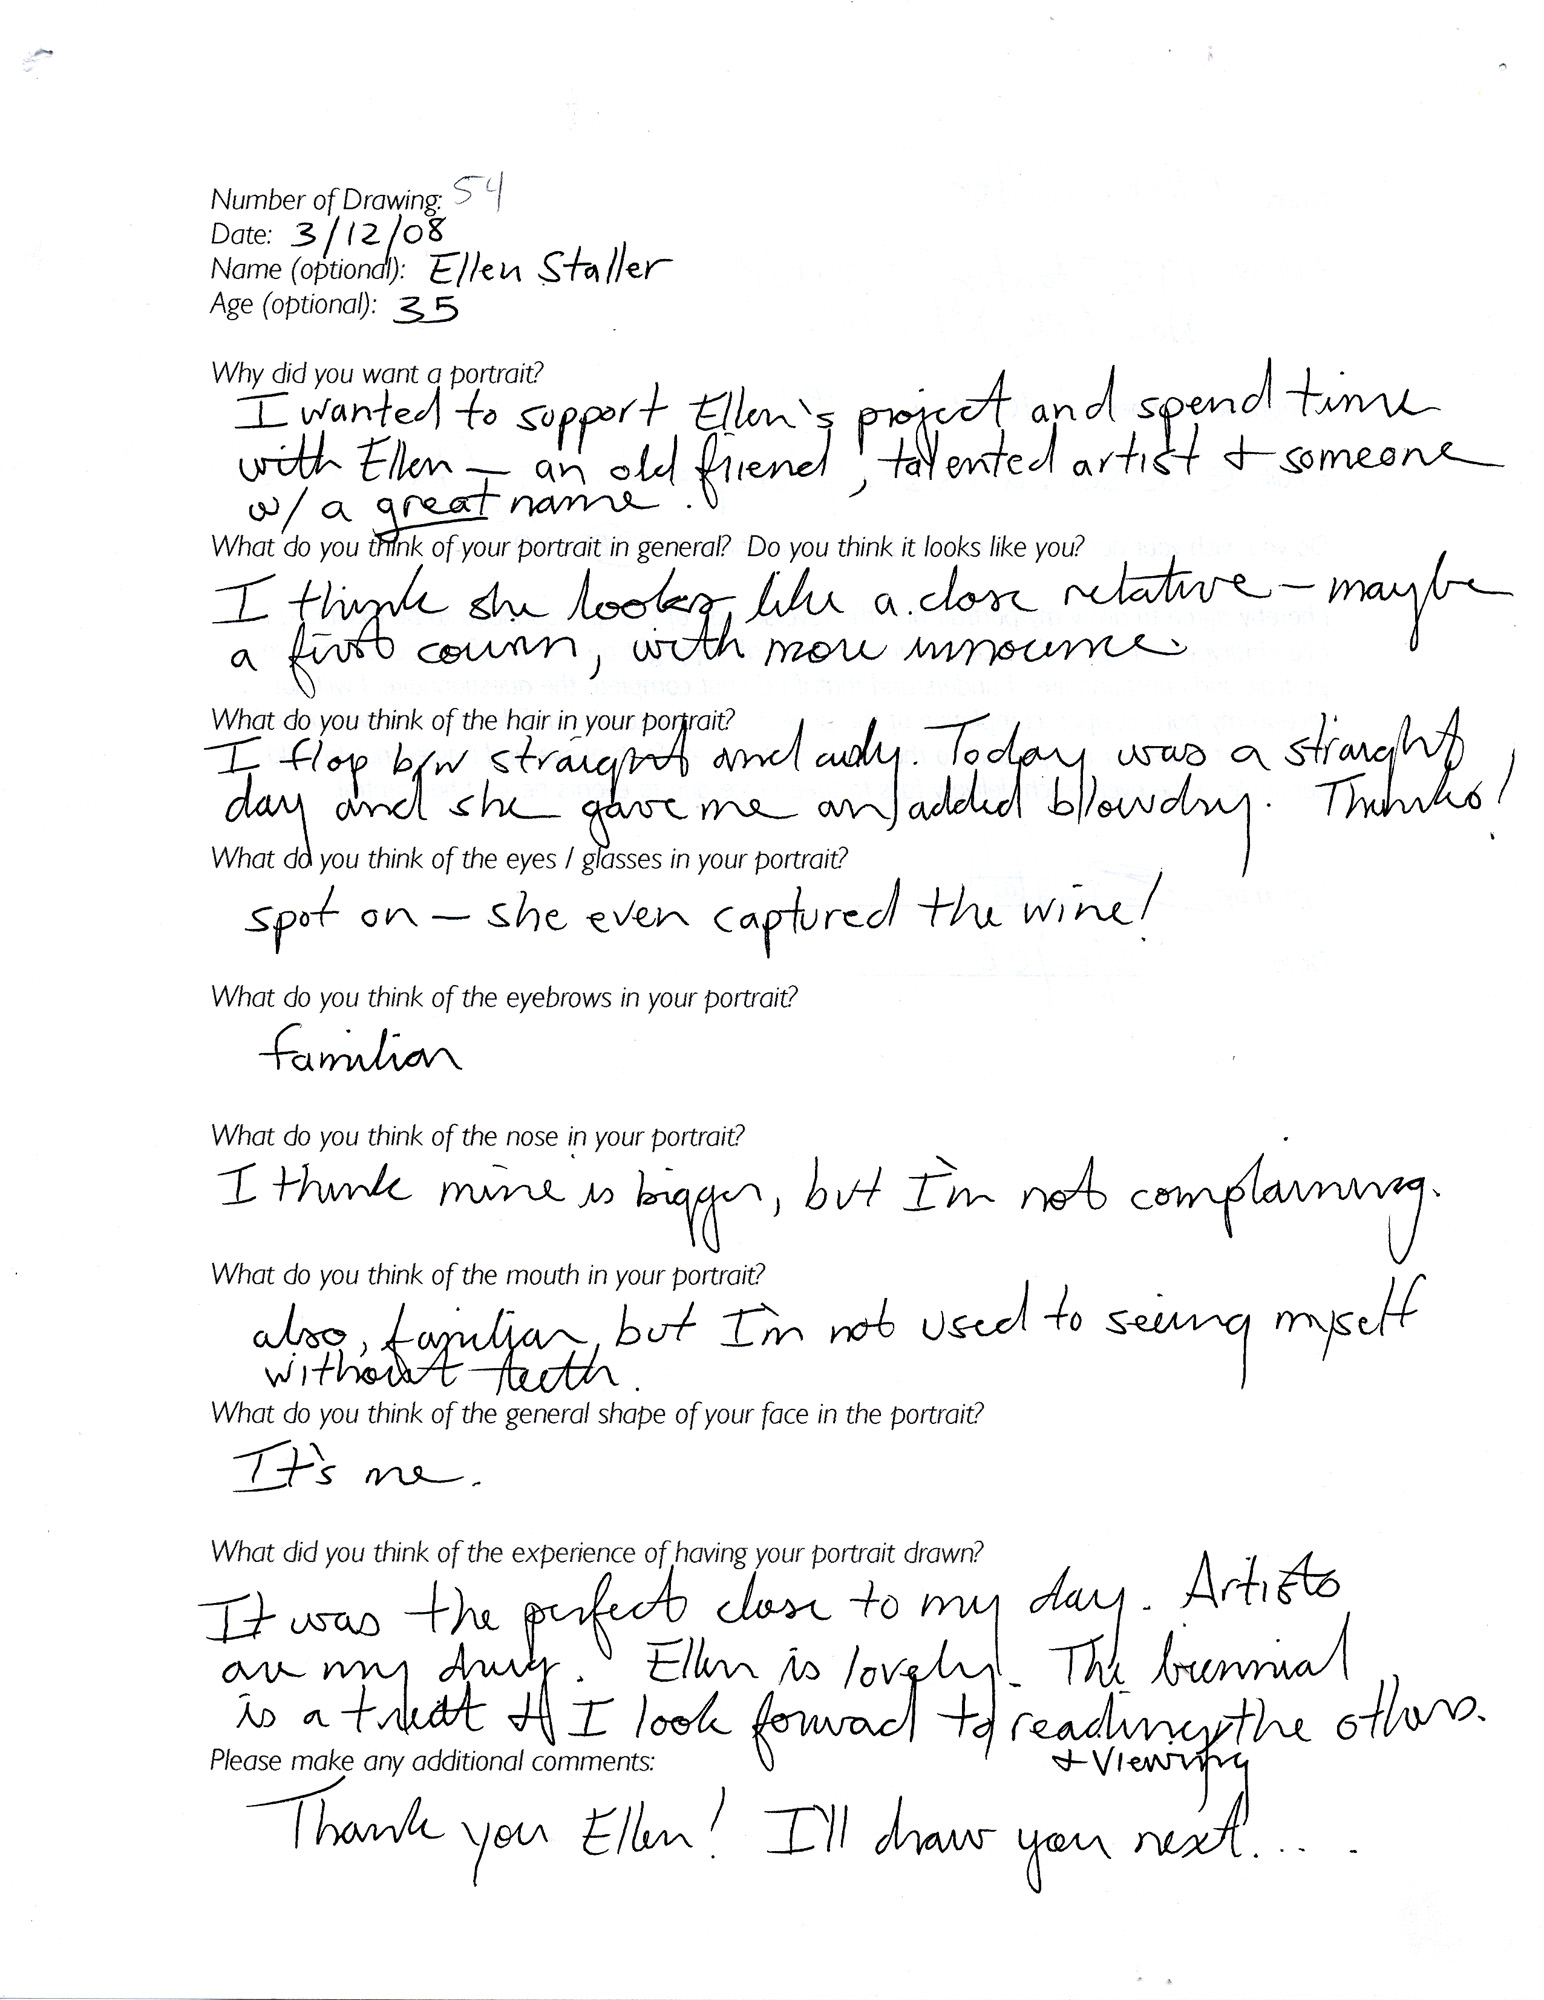 Number of Drawing: 54
Date: 3/12/08
Name (optional): Ellen Staller
Age (optional): 35
Why did you want a portrait?
I wanted to support Ellen's project and spend time
with Ellen — an old friend, talented artist + someone
w/ a great name.
What do you think of your portrait in general? Do you think it looks like you?
I think she looks like a close relative — maybe
a first cousin, with more innocence.
What do you think of the hair in your portrait?
I flop b/w straight and curly. Today was a straight
day and she gave me an added blowdry. Thanks!
What do you think of the eyes / glasses in your portrait?
spot on — she even captured the wine!
What do you think of the eyebrows in your portrait?
familiar
What do you think of the nose in your portrait?
I think mine is bigger, but I'm not complaining.
What do you think of the mouth in your portrait?
also, familiar, but I'm not used to seeing myself
without teeth.
What do you think of the general shape of your face in the portrait?
It's me.
What did you think of the experience of having your portrait drawn?
It was the perfect close to my day. Artists
are my drug. Ellen is lovely. The biennial
is a treat & I look forward to reading the others.
+ viewing
Please make any additional comments:
Thank you Ellen! I'll draw you next....